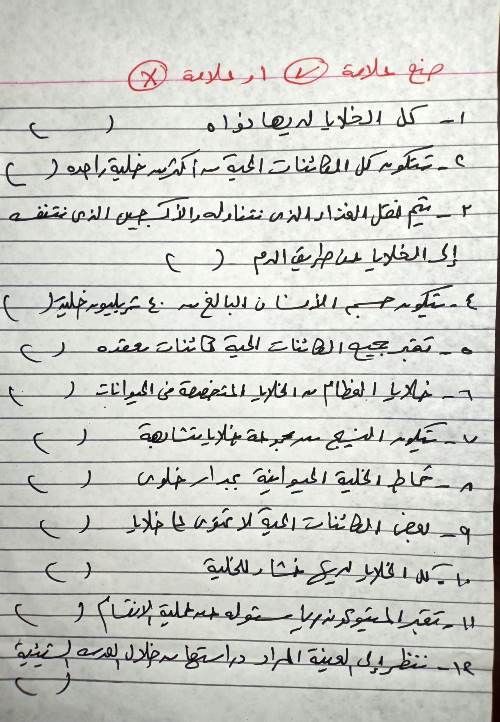 ضع علامة (√) او علامة (X)
١- كل الخلايا لديها نواه ( )
٢- تتكون كل الكائنات الحية من أكثر من خلية واحده ( )
٣- يتم نقل الغذاء الذى نتناوله والأكسجين الذى نتنفسه
إلى الخلايا عن طريق الدم ( )
٤- يتكون جسم الأنسان البالغ من ٤٠ تريليون خلية ( )
٥- تعتبر جميع الكائنات الحية كائنات معقده ( )
٦- خلايا العظام من الخلايا المتخصصة فى الحيوانات ( )
٧- يتكون النسيج من مجموعة خلايا متشابهة ( )
٨- تحاط الخلية الحيوانية بجدار خلوى ( )
٩- بعض الكائنات الحية لا تحتوى على خلايا ( )
١٠- كل الخلايا لديها غشاء للخلية ( )
١١- تعتبر الميتوكوندريا مسئوله عن عملية الانقسام ( )
١٢- ننظر إلى العينة المراد دراستها من خلال العدسه الشيئية
( )